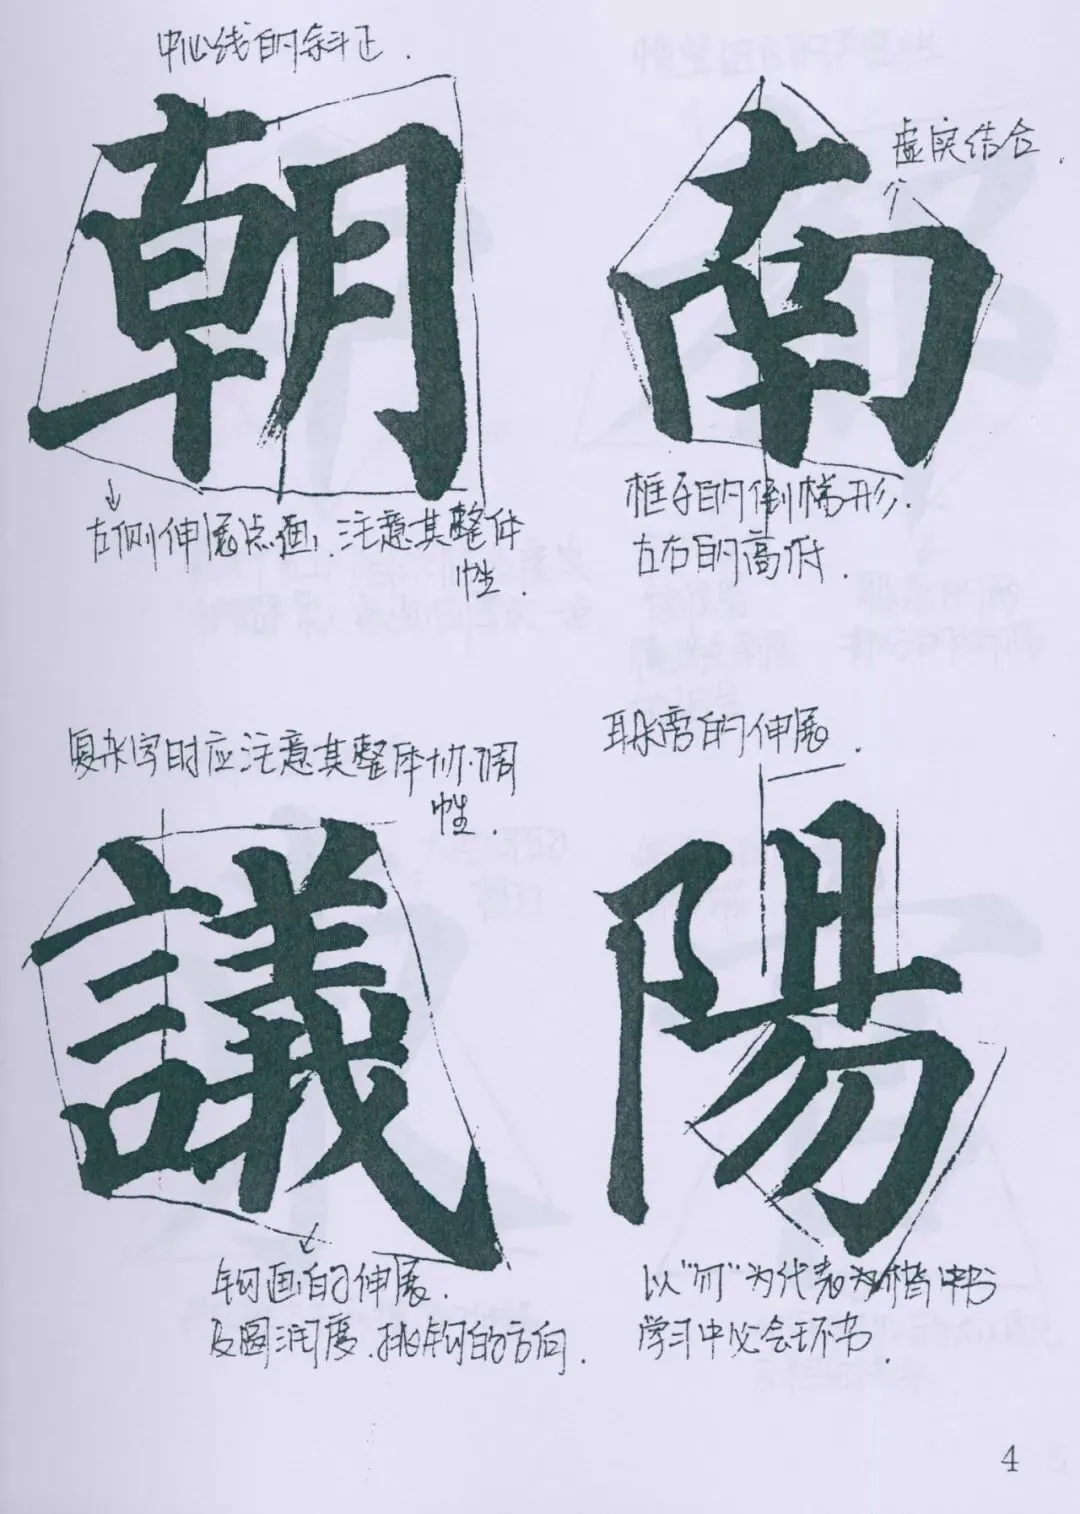 中心线的斜正.
朝
左侧伸展点画,注意其整体
性.
南
虚实结合.
框子的倒梯形.
左右的高低.
复杂字时应注意其整体协调
性.
議
钩画的伸展.
及圆润度.挑钩的方向.
耳朵旁的伸展.
陽
以"勿"为代表为楷书
学习中必会环节.
4